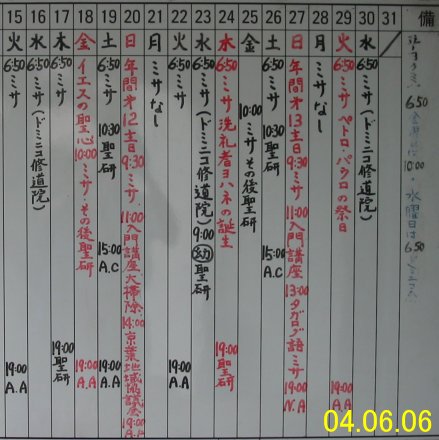 15 火 6:50 ミサ 19:00 A.A
16 水 6:50 ミサ(ドミニコ修道院)
17 木 6:50 ミサ 19:00 聖研
18 金 イエスの聖心 10:00 ミサ・その後聖研 19:00 A.A
19 土 6:50 ミサ 10:30 聖研 15:00 A.C 19:00 A.A
20 日 年間才12主日 9:30 ミサ 11:00 入門講座 大掃除 14:00 京葉地域協議会 19:00
21 月 ミサなし
22 火 6:50 ミサ 19:00 A.A
23 水 6:50 ミサ(ドミニコ修道院) 9:00 幼 聖研
24 木 6:50 ミサ 洗礼者ヨハネの誕生 19:00 聖研
25 金 10:00 ミサその後聖研
26 土 6:50 ミサ 10:30 聖研 15:00 A.C
27 日 年間才13主日 9:30 ミサ 11:00 入門講座 13:00 タガログ語ミサ 19:00 N.A
28 月 ミサなし
29 火 6:50 ミサ ペトロ・パウロの祭日 19:00 A.A
30 水 6:50 ミサ(ドミニコ修道院)
31
備
6:50
10:00
水曜日は
6:50
04.06.06